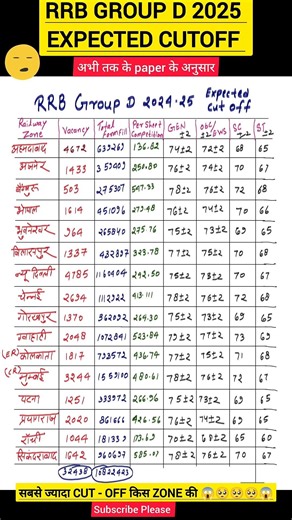 RRB GROUP D 2025
EXPECTED CUTOFF
अभी तक के paper के अनुसार
RRB Group D 2024-25 Expected cut off
Railway Zone Vacancy Total Formfill Per Short Competition GEN ±2 OBC/EWS ±2 SC ±2 ST ±2
अहमदाबाद 4672 639269 136.82 74±2 72±2 68 65
अजमेर 1433 76±2 74±2 68 65
बेंगलुरु 503 275307 547.33 78±2 76±2 72 68
भोपाल 1614 451096 279.48 76±2 74±2 70 66
भुवनेश्वर 964 265840 275.76 75±2 73±2 69 65
बिलासपुर 1337 432897 323.78 77±2 75±2 70 68
न्यू दिल्ली 4785 1160404 242.50 75±2 73±2 70 67
चेन्नई 2694 1112922 413.11 78±2 76±2 72 68
गोरखपुर 1370 362092 264.30 75±2 73±2 69 65
गुवाहाटी 2048 1072841 523.84 79±2 77±2 73 69
(ER) कोलकाता 1817 436.74 77±2 75±2 71 68
(CR) मुम्बई 3244 1559100 480.61 78±2 76±2 72 67
पटना 1251 333972 266.96 75±2 73±2 69 65
प्रयागराज 2020 861666 426.56 76±2 74±2 69 65
राँची 1044 181339 173.69 70±2 68±2 65 60
सिकंदराबाद 1642 960697 585.07 78±2 76±2 70 67
32438 10822423
सबसे ज्यादा CUT - OFF किस ZONE की 😱🥺🥺😱
Subscribe Please